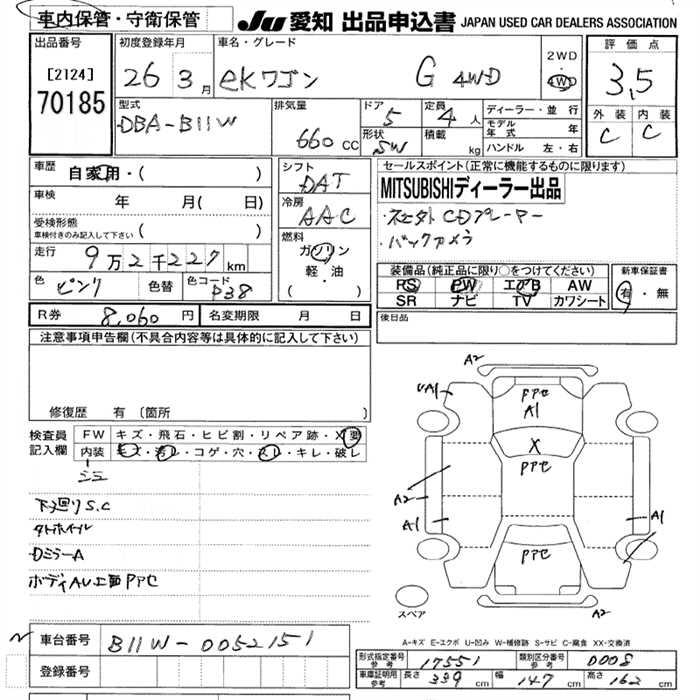 車内保管・守衛保管
JU 愛知 出品申込書 JAPAN USED CAR DEALERS ASSOCIATION
出品番号
[2124]
70185
初度登録年月
26 3月
車名・グレード
ekワゴン G 4WD
2WD
4WD
評価点
3.5
外装 内装
C C
型式
DBA-B11W
排気量
660 cc
ドア
5
形状
SW
定員
4人
積載
kg
ディーラー・並行
モデル年式 年
ハンドル 左・右
車歴
自家用・( )
車検
年 月( 日)
受検形態
車検付きのみ記入して下さい ( )
走行
9万2千227km
色
ピンク
色替
色コード
P38
シフト
DAT
冷房
AAC
燃料
ガソリン
軽・油
( )
セールスポイント(正常に機能するものに限ります)
MITSUBISHIディーラー出品
・社外CDプレーヤー
・バックカメラ
装備品(純正品に限り○をつけてください)
PS PW エアB AW
SR ナビ TV カワシート
新車保証書
有・無
R券 8,060円
名変期限 月 日
後日品
注意事項申告欄(不具合内容等は具体的に記入して下さい)
修復歴 有 〔箇所 〕
検査員記入欄
FW キズ・飛石・ヒビ割・リペア跡・X要
内装 キズ・汚レ・コゲ・穴・スレ・キレ・破レ
下廻りS.C
タトホイール
DミラーA
A2
A1
PPセ
A1
X
PPセ
A2
A1
A1
PPセ
A2
スペア
A-キズ E-エクボ U-凹み W-補修跡 S-サビ C-腐食 XX-交換済
車台番号 B11W-0052151
登録番号
形式指定番号 参考 17551
類別区分番号 参考 0008
車庫証明用 参考 長さ 339cm 幅 147cm 高さ 162cm